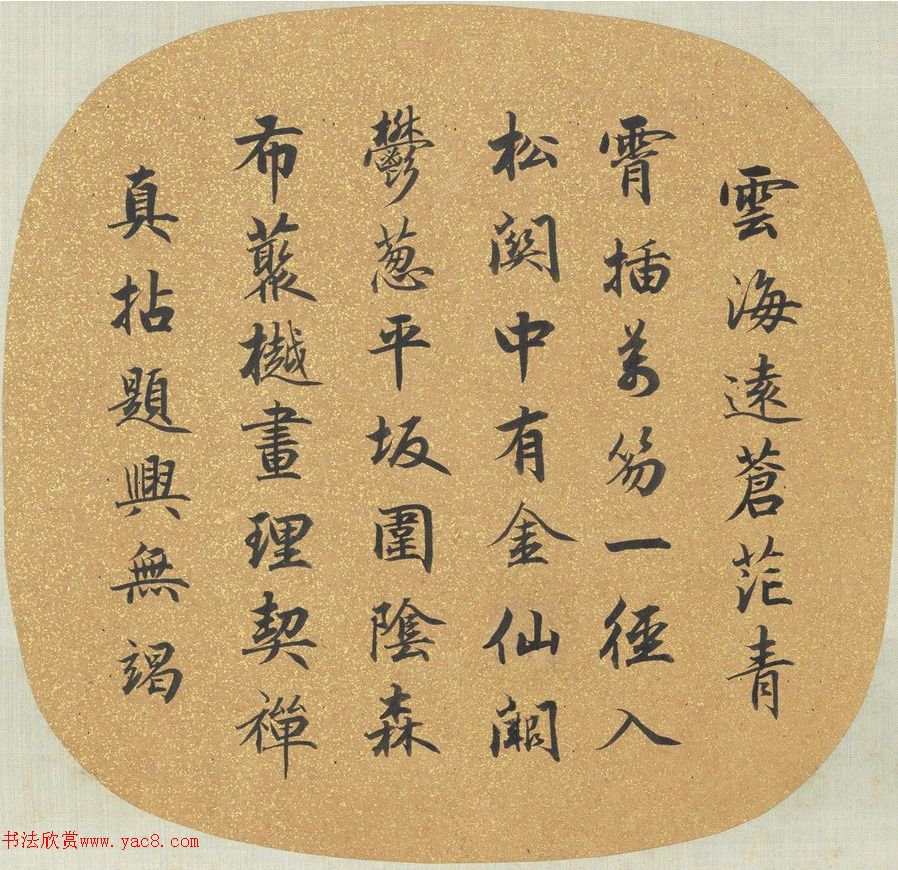 雲海遠蒼茫青
霄插萬笏一徑入
松關中有金仙闕
鬱葱平坂圍陰森
布藂樾畫理契禪
真拈題興無竭
书法欣赏www.yac8.com